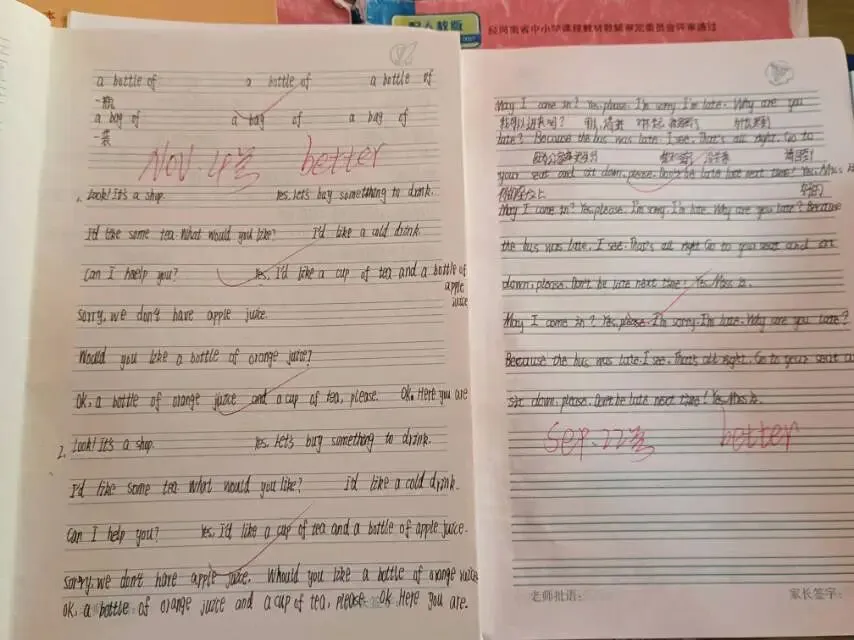 配人教版
经河南省中小学课程教材教辅审定委员会评审通过
a bottle of a bottle of a bottle of
一瓶
a bag of a bag of a bag of
一袋
Nov. 4号 better
1. Look! It's a shop. Yes, Let's buy something to drink.
I'd like some tea. What would you like? I'd like a cold drink.
Can I haelp you? Yes, I'd like a cup of tea and a bottle of
apple
juice
Sorry, we don't have apple juice.
Would you like a bottle of orange juice?
OK. a bottle of orange juice and a cup of tea, please. OK. Here you are
2. Look! It's a shop. Yes, Let's buy something to drink.
I'd like some tea. What would you like? I'd like a cold drink.
Can I help you? Yes, I'd like a cup of tea and a bottle of apple juice.
Sorry, we don't have apple juice. Whould you like a bottle of orange juice
OK, a bottle of orange juice and a cup of tea, please. OK. Here you are.
May I come in? Yes, please. I'm sorry I'm late. Why are you
late? Because the bus was late. I see. That's all right. Go to
your seat and sit down, please. Don't be late next time! Yes, Miss
May I come in? Yes, please. I'm sorry. I'm late. Why are you late? Because
the bus was late. I see. That's all right Go to your seat and sit
down, please. Don't be late next time! Yes, Miss
May I come in? Yes, please. I'm sorry. I'm late. Why are you late?
Because the bus was late. I see. That's all right. Go to your seat a
sit down, please. Don't be late next time! Yes, Miss
Sep. 22号 better
老师批语: 家长签字: